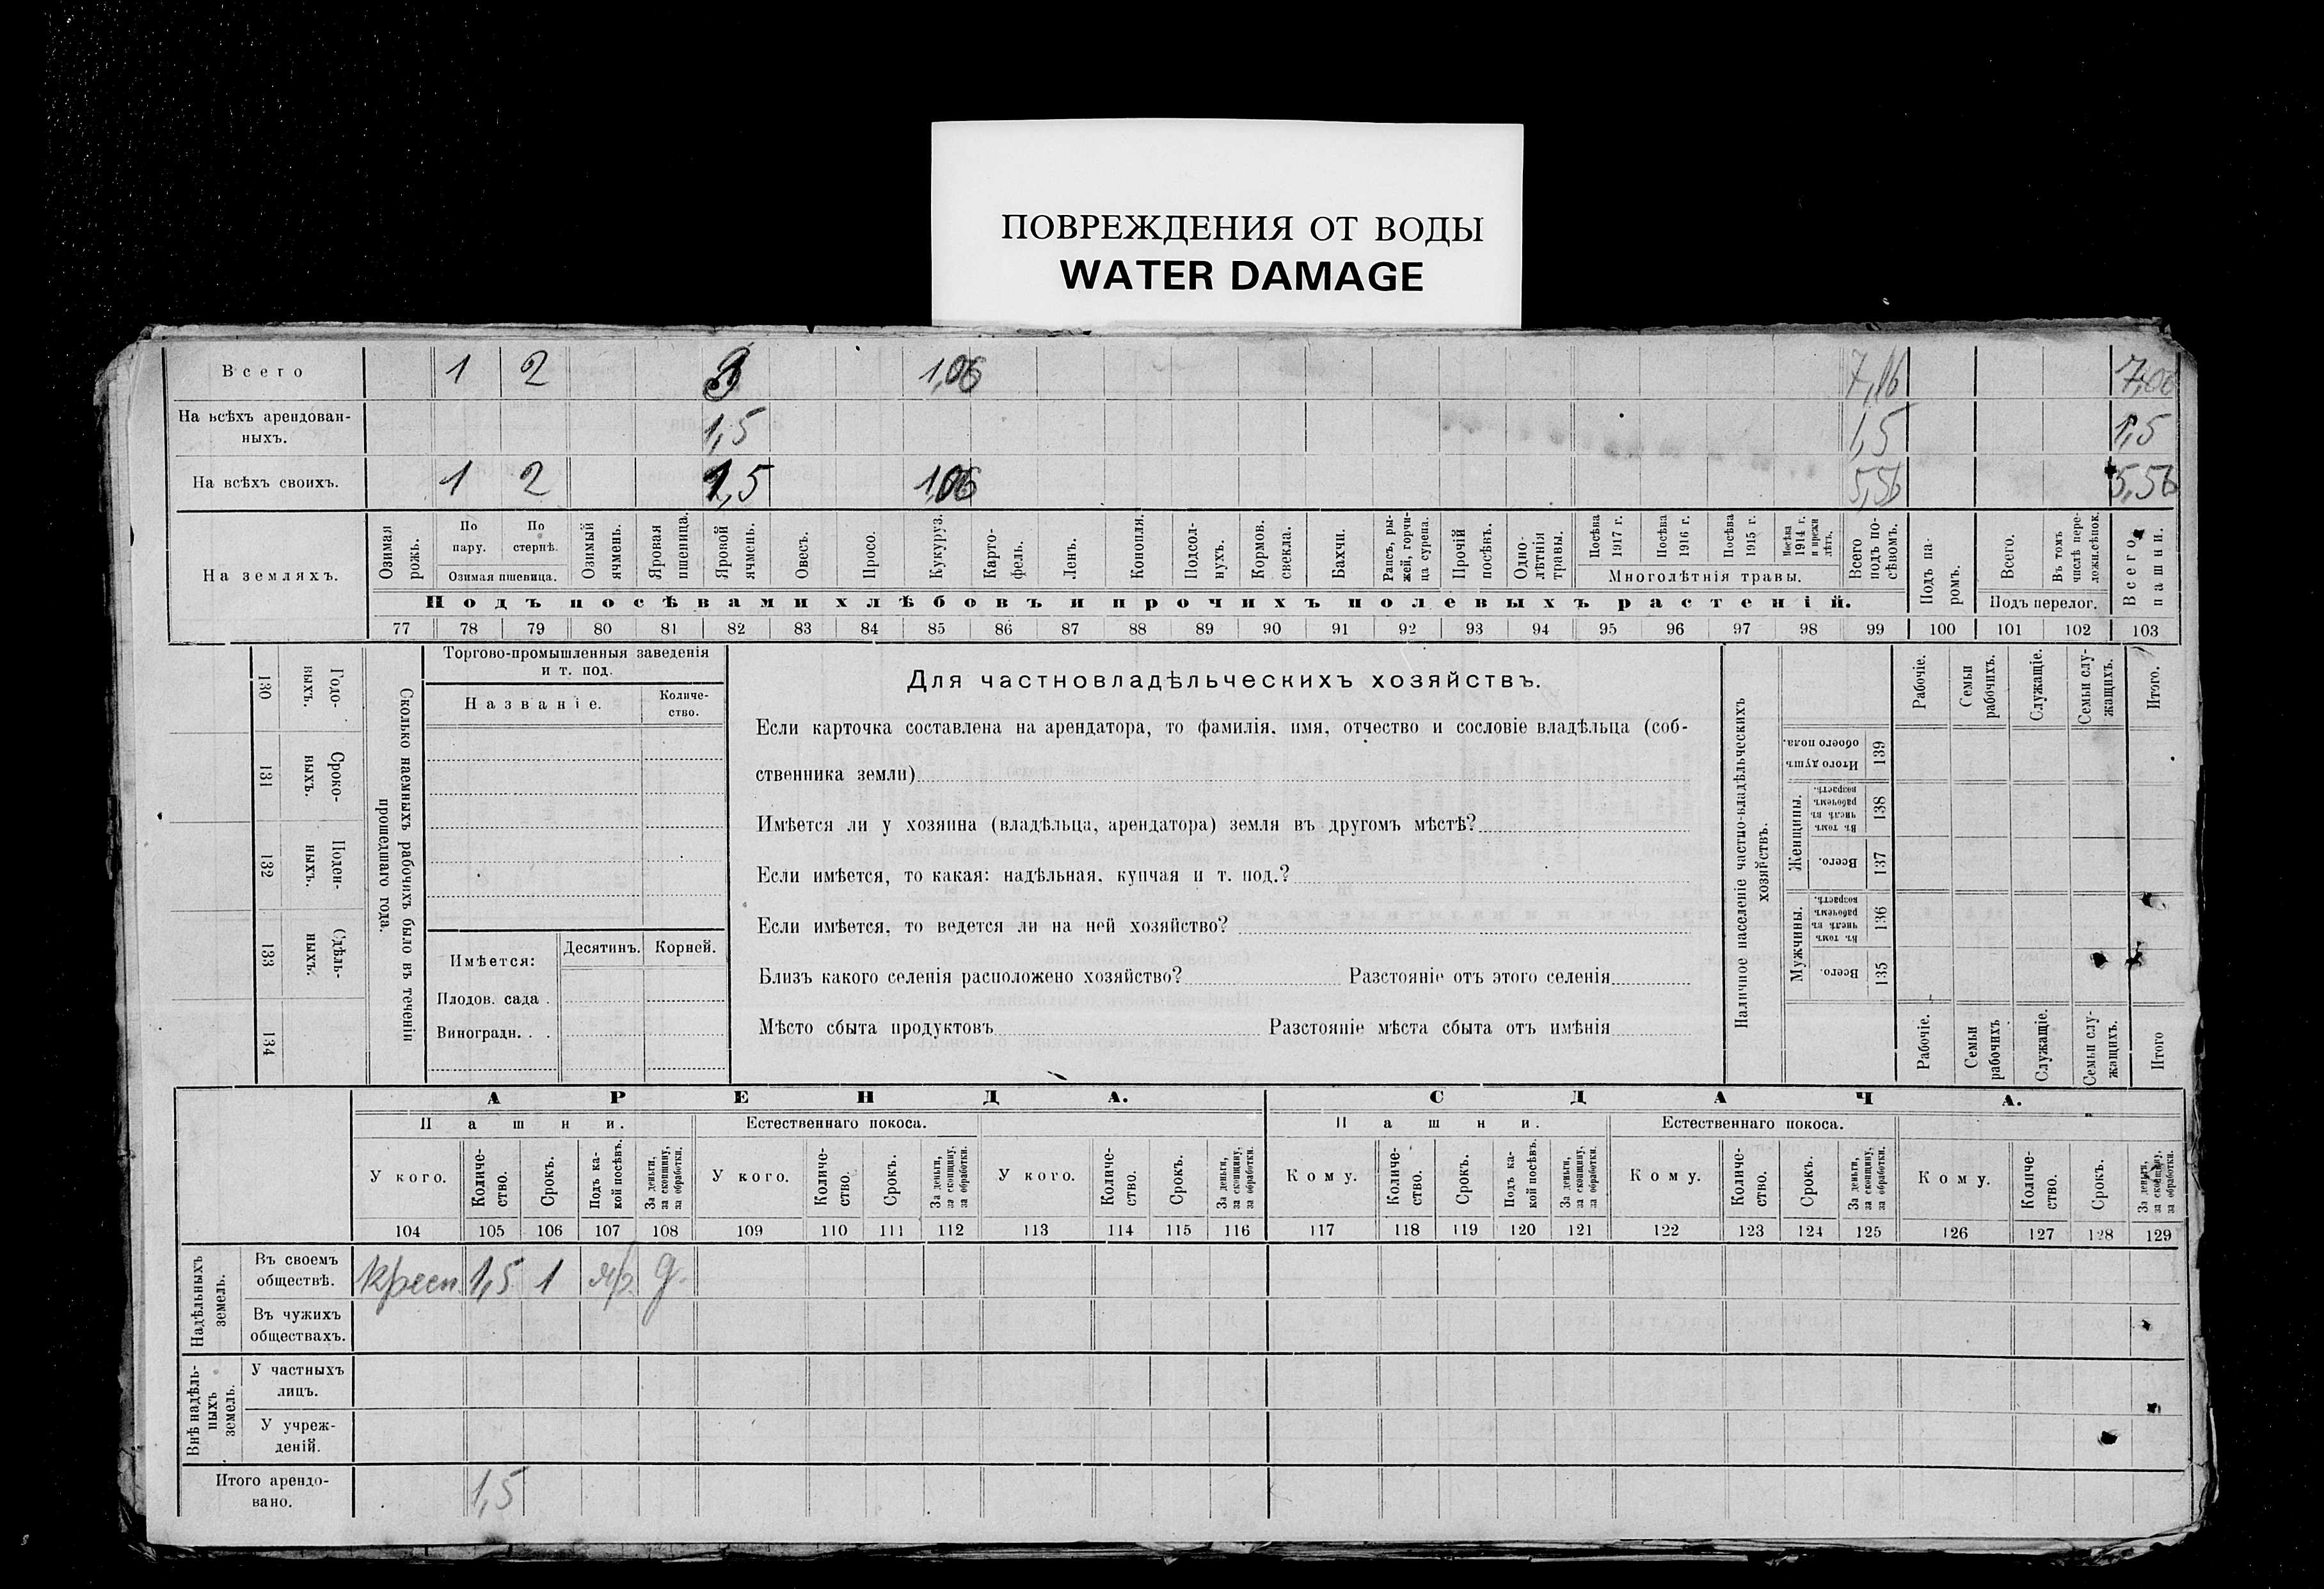 ПОВРЕЖДЕНИЯ ОТ ВОДЫ
WATER DAMAGE
Всего 1 2 3 1,06 7,06
На всѣхъ арендован-
ныхъ. 1,5 1,5 1,5
На всѣхъ своихъ. 1 2 1,5 1,06 5,56 5,56
На земляхъ.
Озимая рожь.
По пару.
По стернѣ.
Озимая пшеница.
Озимый ячмень.
Яровая пшеница.
Яровой ячмень.
Овесъ.
Просо.
Кукуруз.
Карто-
фель.
Ленъ.
Конопля.
Подсол-
нухъ.
Кормов. свекла.
Бахчи.
Рапсъ, ры-
жей, горчи-
ца сурепа.
Прочій посѣвъ.
Одно-
лѣтнія травы.
Посѣва 1917 г.
Посѣва 1916 г.
Посѣва 1915 г.
Посѣва 1914 г. и прежн лѣтъ.
Многолѣтнія травы.
Всего подъ по-
сѣвомъ.
Подъ па-
ромъ.
Всего.
Въ томъ числѣ пере-
Подъ перелог.
Всего пашни.
Подъ посѣвами хлѣбовъ и прочихъ полевыхъ растеній.
77 78 79 80 81 82 83 84 85 86 87 88 89 90 91 92 93 94 95 96 97 98 99 100 101 102 103
130 Годо-
выхъ.
131 Сроко-
выхъ.
132 Поден-
ныхъ.
133 Сдѣль-
ныхъ.
134
Сколько наемныхъ рабочихъ было въ теченіи
прошедшаго года.
Торгово-промышленныя заведенія
и т. под.
Названіе.
Количе-
ство.
Имѣется:
Десятинъ. Корней.
Плодов. сада .
Виноградн. . .
Для частновладѣльческихъ хозяйствъ.
Если карточка составлена на арендатора, то фамилія, имя, отчество и сословіе владѣльца (соб-
ственника земли)
Имѣется ли у хозяина (владѣльца, арендатора) земля въ другомъ мѣстѣ?
Если имѣется, то какая: надѣльная, купчая и т. под.?
Если имѣется, то ведется ли на ней хозяйство?
Близъ какого селенія расположено хозяйство? Разстояніе отъ этого селенія
Мѣсто сбыта продуктовъ Разстояніе мѣста сбыта отъ имѣнія
Наличное населеніе частно-владѣльческихъ
хозяйствъ.
Рабочіе.
Семьи рабочихъ.
Служащіе.
Семьи слу-
жащихъ.
Итого.
Итого душъ обоего пола. 139
Женщины.
Въ томъ числѣ въ рабочемъ возрастѣ. 138
Всего. 137
Мужчины.
Въ томъ числѣ въ рабочемъ возрастѣ. 136
Всего. 135
Рабочіе.
Семьи рабочихъ
Служащіе.
Семьи слу-
жащихъ.
Итого
АРЕНДА. СДАЧА.
Пашни. Естественнаго покоса. Пашни. Естественнаго покоса.
У кого.
Количе-
ство.
Срокъ.
Подъ ка-
кой посѣвъ.
За деньги, за скопщину, за обработки.
У кого.
Количе-
ство.
Срокъ.
За деньги, за скопщину, за обработки.
У кого.
Количе-
ство.
Срокъ.
За деньги, за скопщину, за обработки.
Кому.
Количе-
ство.
Срокъ.
Подъ ка-
кой посѣвъ.
За деньги, за скопщину, за обработки.
Кому.
Количе-
ство.
Срокъ.
За деньги, за скопщину, за обработки.
Кому.
Количе-
ство.
Срокъ.
За деньги, за скопщину, за обработки.
104 105 106 107 108 109 110 111 112 113 114 115 116 117 118 119 120 121 122 123 124 125 126 127 128 129
Надѣльныхъ
земель.
Въ своемъ
обществѣ. крест. 1,5 1 яр. д.
Въ чужихъ
обществахъ.
Внѣ надѣль-
ныхъ
земель.
У частныхъ
лицъ.
У учреж-
деній.
Итого арендо-
вано. 1,5